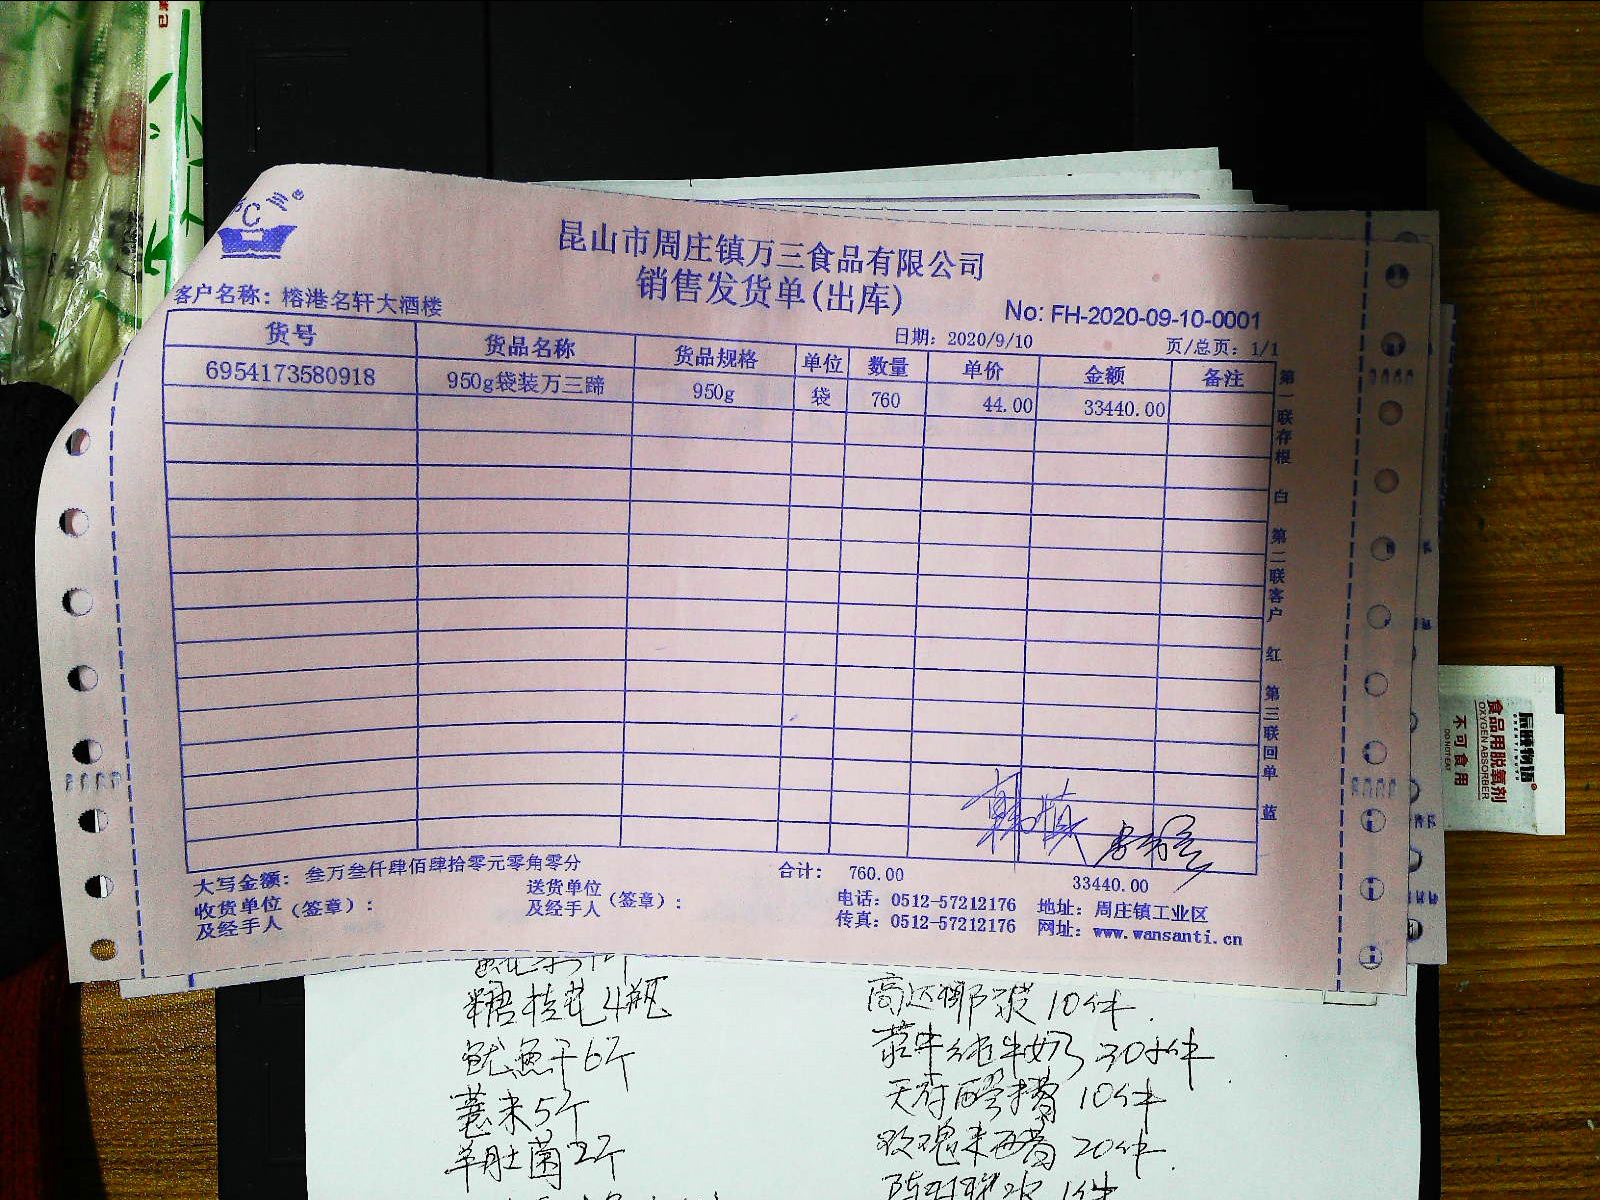 昆山市周庄镇万三食品有限公司
销售发货单(出库)
客户名称: 榕港名轩大酒楼
No: FH-2020-09-10-0001
日期: 2020/9/10
页/总页: 1/1
货号 货品名称 货品规格 单位 数量 单价 金额 备注
6954173580918 950g袋装万三蹄 950g 袋 760 44.00 33440.00
第一联存根 白 第二联客户 红 第三联回单 蓝
大写金额: 叁万叁仟肆佰肆拾零元零角零分 合计: 760.00 33440.00
收货单位及经手人(签章): 送货单位及经手人(签章):
电话: 0512-57212176 地址: 周庄镇工业区
传真: 0512-57212176 网址: www.wansanti.cn
食品用脱氧剂
OXYGEN ABSORBER
不可食用
DO NOT EAT
糖桂花4瓶
鱿鱼干6斤
薏米5斤
羊肚菌2斤
高达椰浆10件
蒙牛纯牛奶30件
10件
玫瑰米 20件